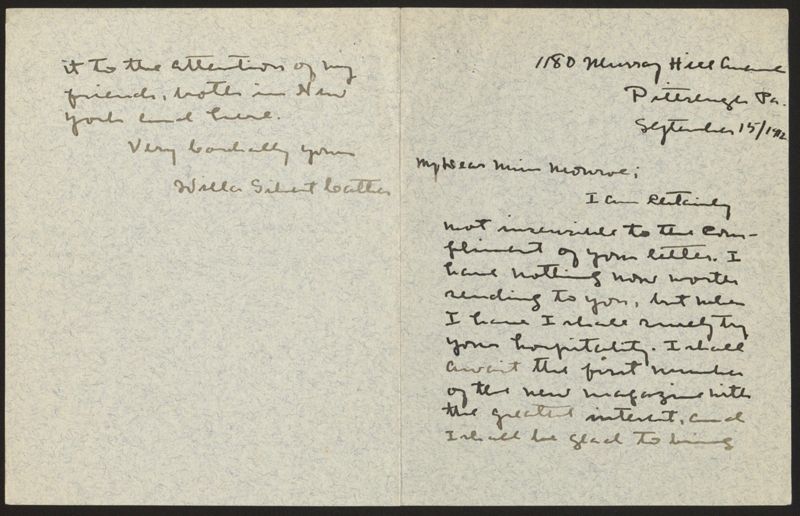 1180 Murray Hill Avenue
Pittsburgh Pa.
September 15/1912
My Dear Miss Monroe;
I am certainly
not insensible to the com-
pliment of your letter. I
have nothing now worth
sending to you, but when
I have I shall surely try
your hospitality. I shall
await the first number
of the new magazine with
the greatest interest, and
I shall be glad to bring
it to the attention of my
friends, both in New
York and here.
Very Cordially yours
Willa Sibert Cather